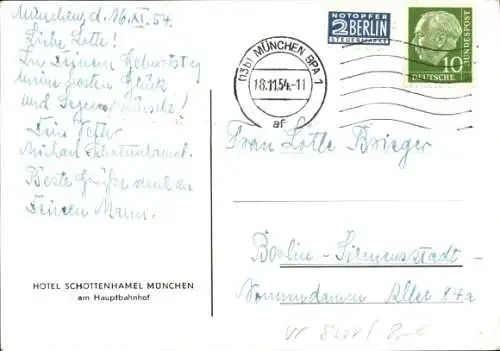 München, d. 16. XI. 54.
Liebe Lotte!
Zu Deinem Geburtstag
meine besten Glück
und Segenswünsche!
Dein Vetter
Michael Schottenhamel.
Beste Grüße auch an
Deinen Mann.
HOTEL SCHOTTENHAMEL MÜNCHEN
am Hauptbahnhof
NOTOPFER
2 BERLIN
STEUERMARKE
(13b) MÜNCHEN BPA 1
18.11.54.-11
af
10
DEUTSCHE BUNDESPOST
Frau Lotte Brieger
Berlin - Siemensstadt -
Nonnendamm Allee 84a